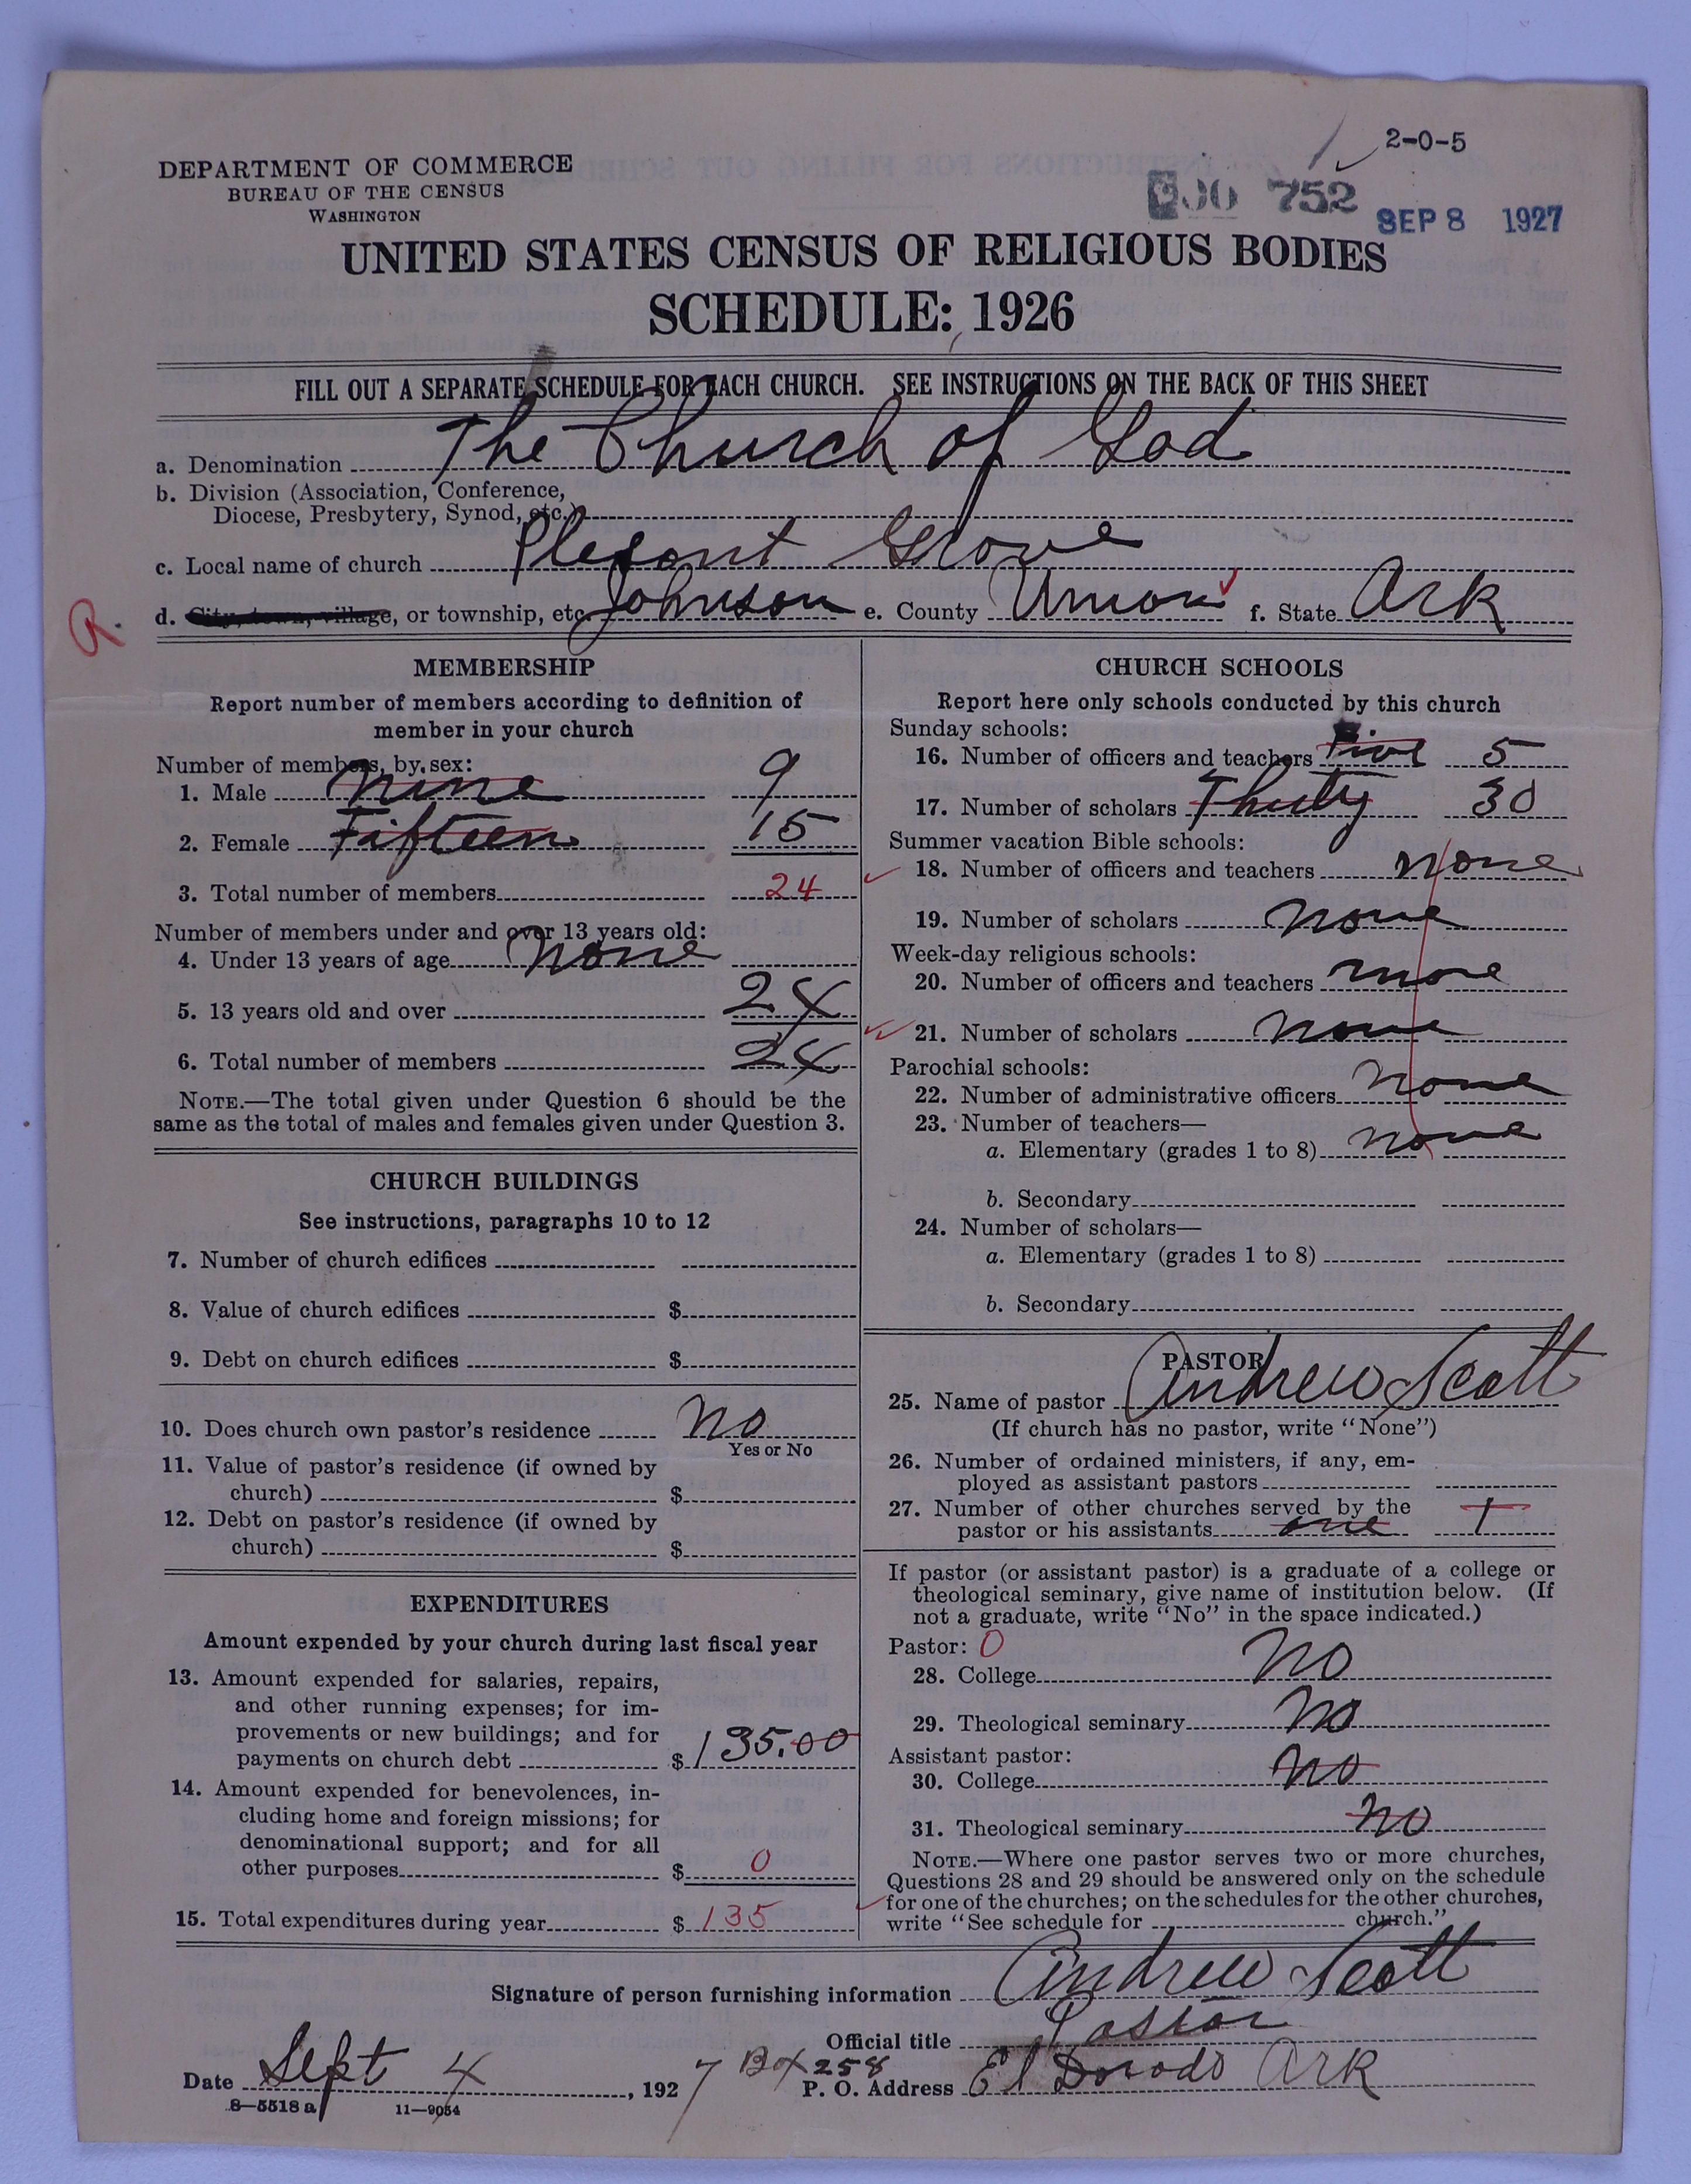 2-0-5
DEPARTMENT OF COMMERCE
BUREAU OF THE CENSUS
WASHINGTON
752
SEP 8 1927
UNITED STATES CENSUS OF RELIGIOUS BODIES
SCHEDULE: 1926
FILL OUT A SEPARATE SCHEDULE FOR EACH CHURCH. SEE INSTRUCTIONS ON THE BACK OF THIS SHEET
a. Denomination The Church of God
b. Division (Association, Conference,
Diocese, Presbytery, Synod, etc.)
c. Local name of church Plesont Grove
R. d. City, town, village, or township, etc. Johnson e. County Union f. State Ark
MEMBERSHIP
Report number of members according to definition of
member in your church
Number of members, by sex:
1. Male nine 9
2. Female Fifteen 15
3. Total number of members 24
Number of members under and over 13 years old:
4. Under 13 years of age none
5. 13 years old and over 24
6. Total number of members 24
NOTE.—The total given under Question 6 should be the
same as the total of males and females given under Question 3.
CHURCH BUILDINGS
See instructions, paragraphs 10 to 12
7. Number of church edifices
8. Value of church edifices $
9. Debt on church edifices $
10. Does church own pastor's residence No
Yes or No
11. Value of pastor's residence (if owned by
church) $
12. Debt on pastor's residence (if owned by
church) $
EXPENDITURES
Amount expended by your church during last fiscal year
13. Amount expended for salaries, repairs,
and other running expenses; for im-
provements or new buildings; and for
payments on church debt $ 135.00
14. Amount expended for benevolences, in-
cluding home and foreign missions; for
denominational support; and for all
other purposes $ 0
15. Total expenditures during year $ 135
CHURCH SCHOOLS
Report here only schools conducted by this church
Sunday schools:
16. Number of officers and teachers Five 5
17. Number of scholars Thirty 30
Summer vacation Bible schools:
18. Number of officers and teachers none
19. Number of scholars none
Week-day religious schools:
20. Number of officers and teachers none
21. Number of scholars none
Parochial schools:
22. Number of administrative officers none
23. Number of teachers—
a. Elementary (grades 1 to 8) none
b. Secondary
24. Number of scholars—
a. Elementary (grades 1 to 8)
b. Secondary
PASTOR
25. Name of pastor Andrew Scott
(If church has no pastor, write "None")
26. Number of ordained ministers, if any, em-
ployed as assistant pastors
27. Number of other churches served by the
pastor or his assistants one 1
If pastor (or assistant pastor) is a graduate of a college or
theological seminary, give name of institution below. (If
not a graduate, write "No" in the space indicated.)
Pastor: 0
28. College No
29. Theological seminary No
Assistant pastor:
30. College No
31. Theological seminary No
NOTE.—Where one pastor serves two or more churches,
Questions 28 and 29 should be answered only on the schedule
for one of the churches; on the schedules for the other churches,
write "See schedule for church."
Signature of person furnishing information Andrew Scott
Official title Pastor
Date Sept 4, 1927 Box 258
P. O. Address El Dorado Ark
8—5518 a 11—9054